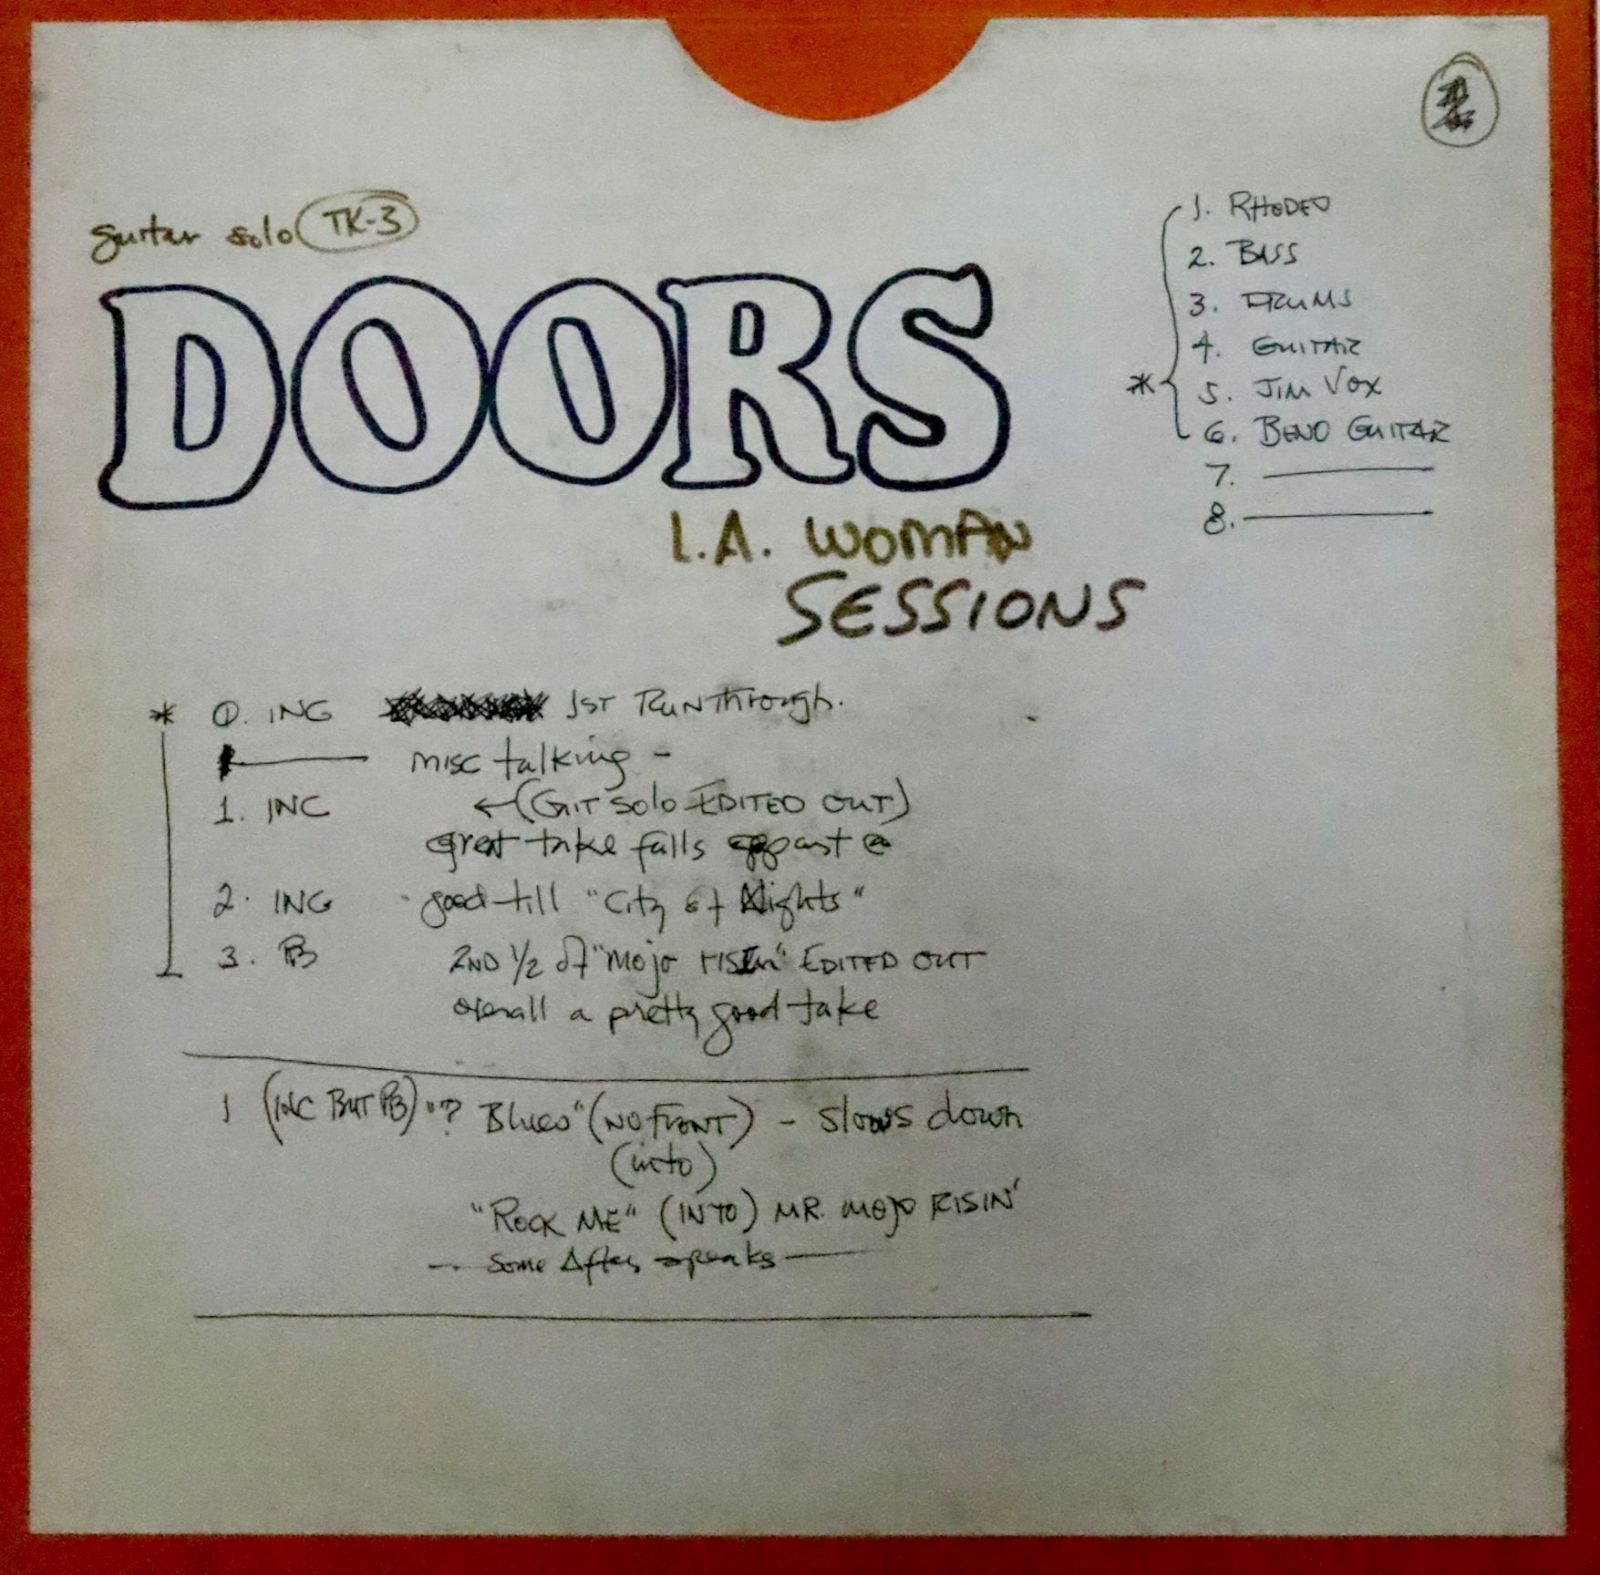 guitar solo TK-3
DOORS
L.A. WOMAN
SESSIONS
1. RHODES
2. BASS
3. DRUMS
4. GUITAR
* 5. JIM VOX
6. BENO GUITAR
7.
8.
* 0. INC 1ST RUNThrough.
misc talking -
1. INC ←(GIT SOLO EDITED OUT)
great take falls appart @
2. INC good till "City of Nights"
3. PB 2ND 1/2 of "Mojo risin" EDITED OUT
overall a pretty good take
1 (INC BUT PB) "? Blues" (NO FRONT) - Slows down
(into)
"ROCK ME" (INTO) MR. MOJO RISIN'
Some After speaks